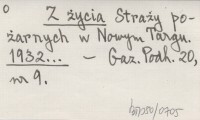 o
Z życia Straży po-
żarnych w Nowym Targu.
1932... – Gaz. Podh. 20,
nr 9.